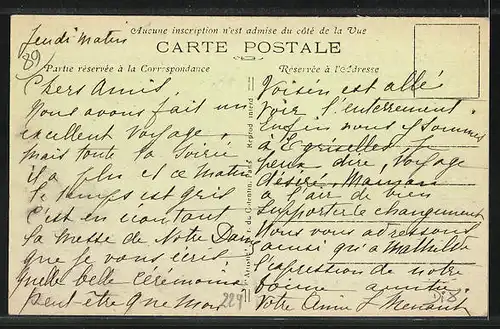 Aucune inscription n'est admise du côté de la Vue
CARTE POSTALE
Partie réservée à la Correspondance
Réservée à l'Adresse
Jeudi matin
89
Chers Amis,
Nous avons fait un
excellent voyage,
mais toute la soirée
il a plu et ce matin
le temps est gris
C'est en écoutant
la messe de Notre Dame
que je vous écris
quelle belle cérémonie
peut-être que mon
Voisin est allé
voir l'enterrement
Enfin nous y sommes
à Egriselles, je
peux dire, voyage
désiré, Maman
a l'air de bien
supporter le changement
Nous vous adressons
ainsi qu'à Mathilde
l'expression de notre
bonne amitié
Votre Amie L
229
D18